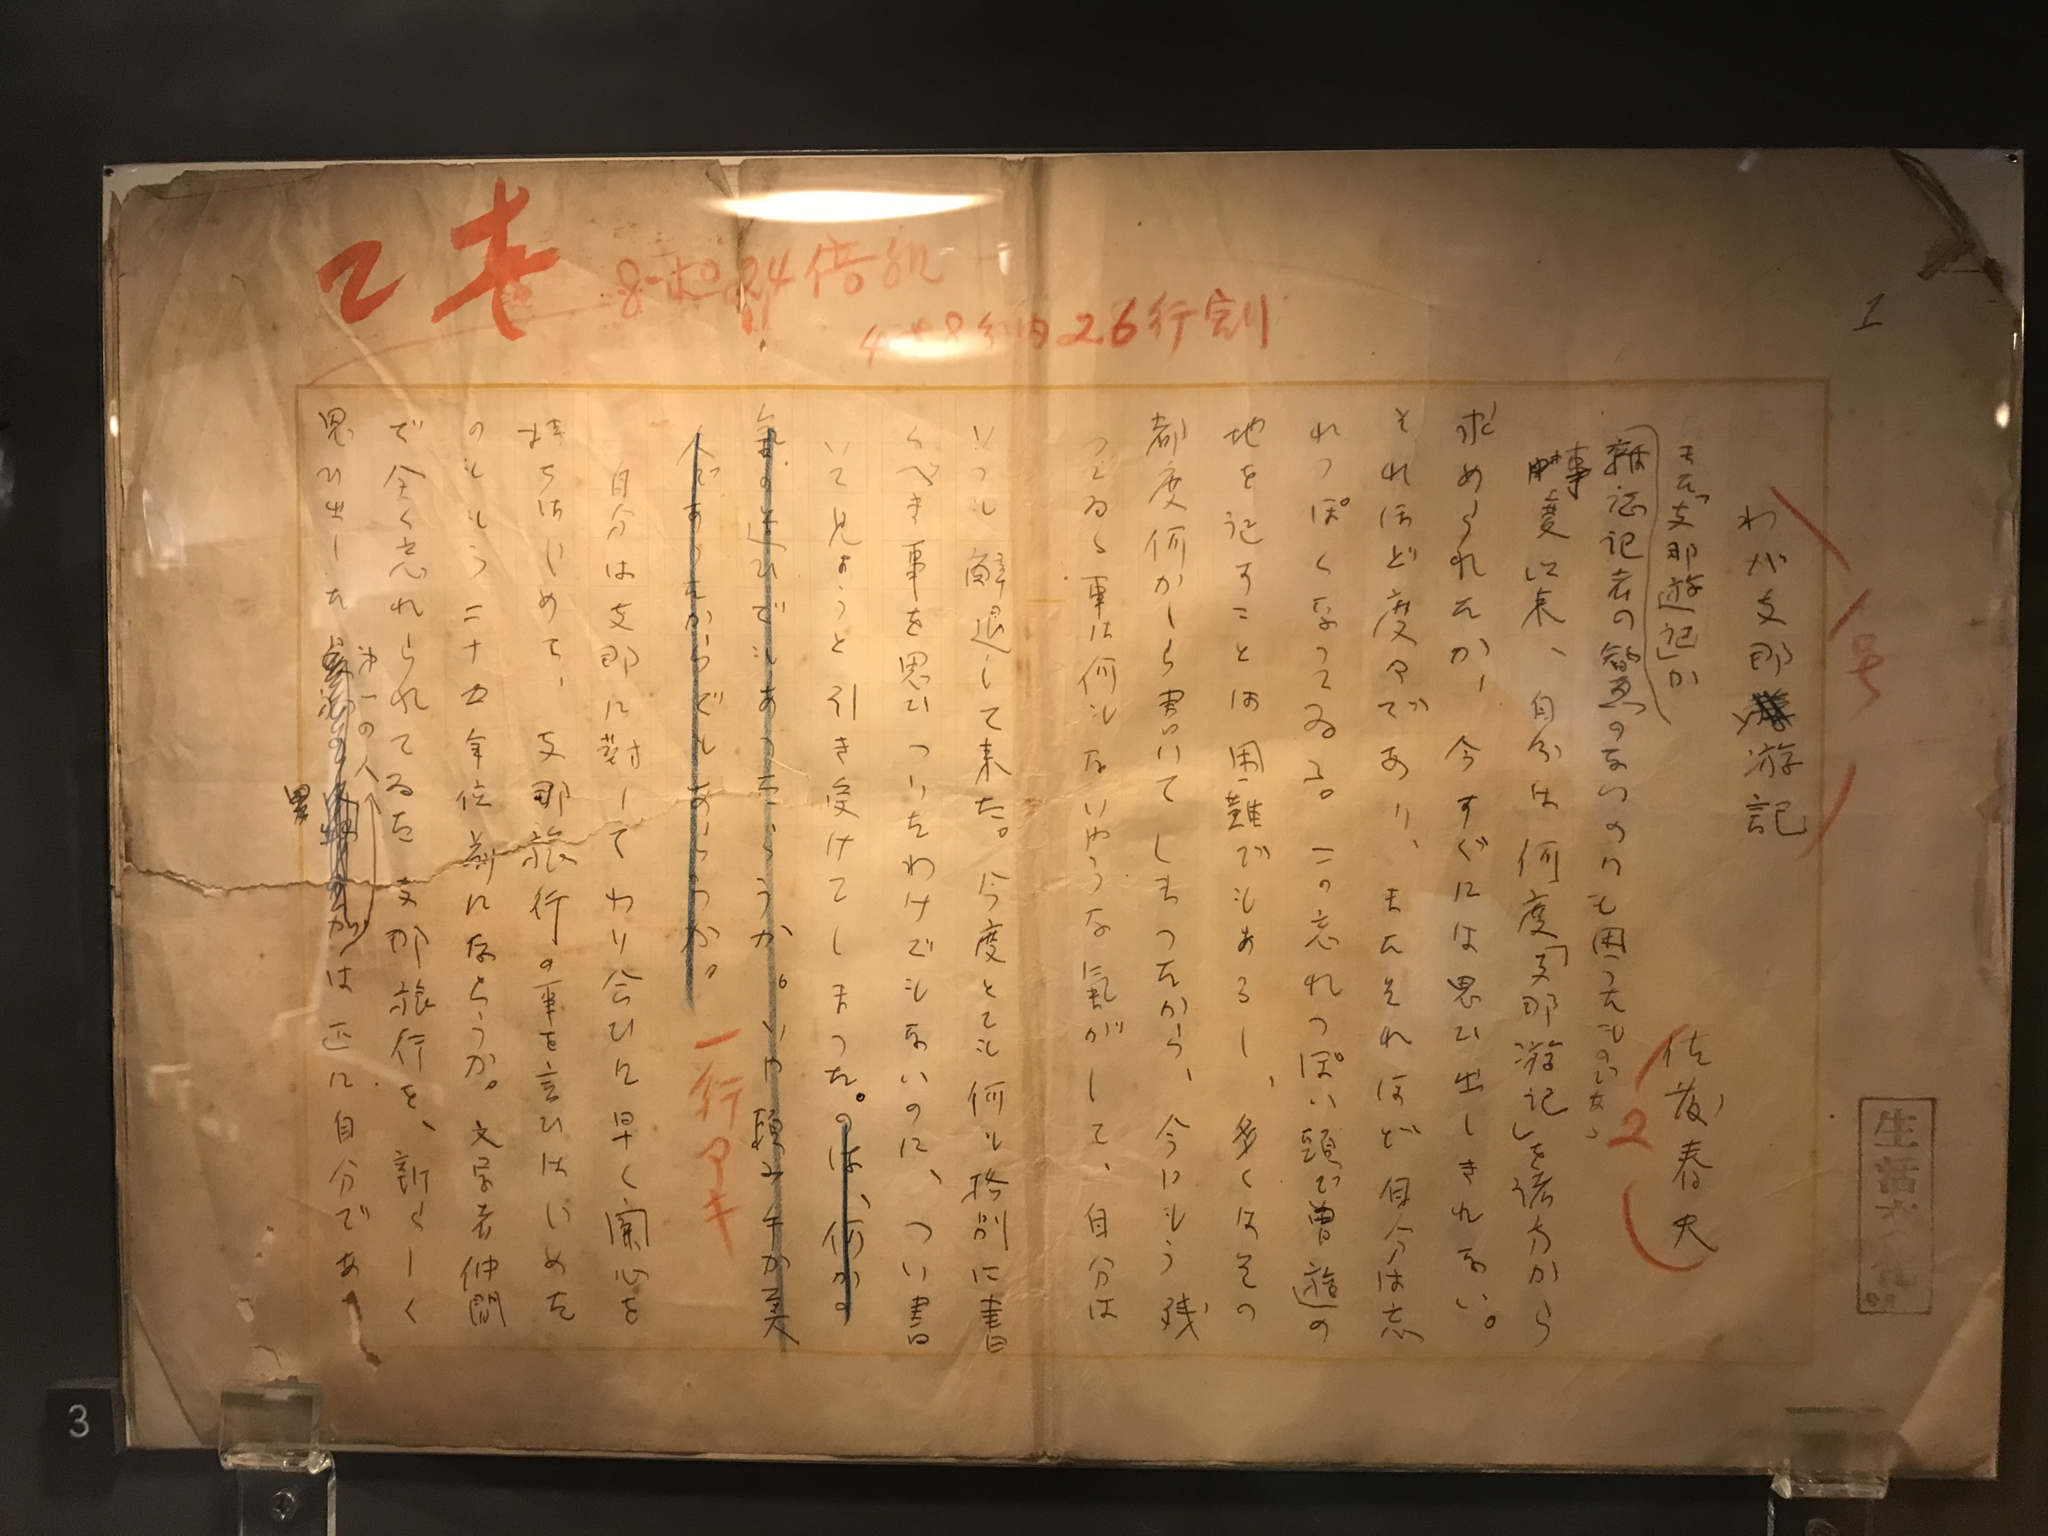 1
わが支那游記
1号
佐藤春夫
2
生活文化
また「支那遊記」か
雑誌記者の智恵のないのにも困つたものだな
事変以来、自分は何度「支那游記」を諸方から
求められたか、今すぐには思ひ出しきれない。
それほど度々であり、またそれほど自分は忘
れつぽくなつてゐる。この忘れつぽい頭で曽遊の
地を記すことは困難でもあるし、多くはその
都度何かしら書いてしまつたから、今にもう残
つてゐる事は何もないやうな気がして、自分は
いつも辞退して来た。今度とても何も格別に書
くべき事を思ひついたわけでもないのに、つい書
いて見ようと引き受けてしまつた。のは、何かの
気の迷ひでもあつたらうか。いや
人であつたからでもあらうか。
一行アキ
自分は支那に対してわり合ひに早く関心を
持ちはじめて、支那旅行の事を言ひはじめた
のもう二十五年位前にならうか。文学者仲間
で全く忘れられてゐた支那旅行を、新らしく
思ひ出した第一の人は正に自分であ
24倍
26行割
3